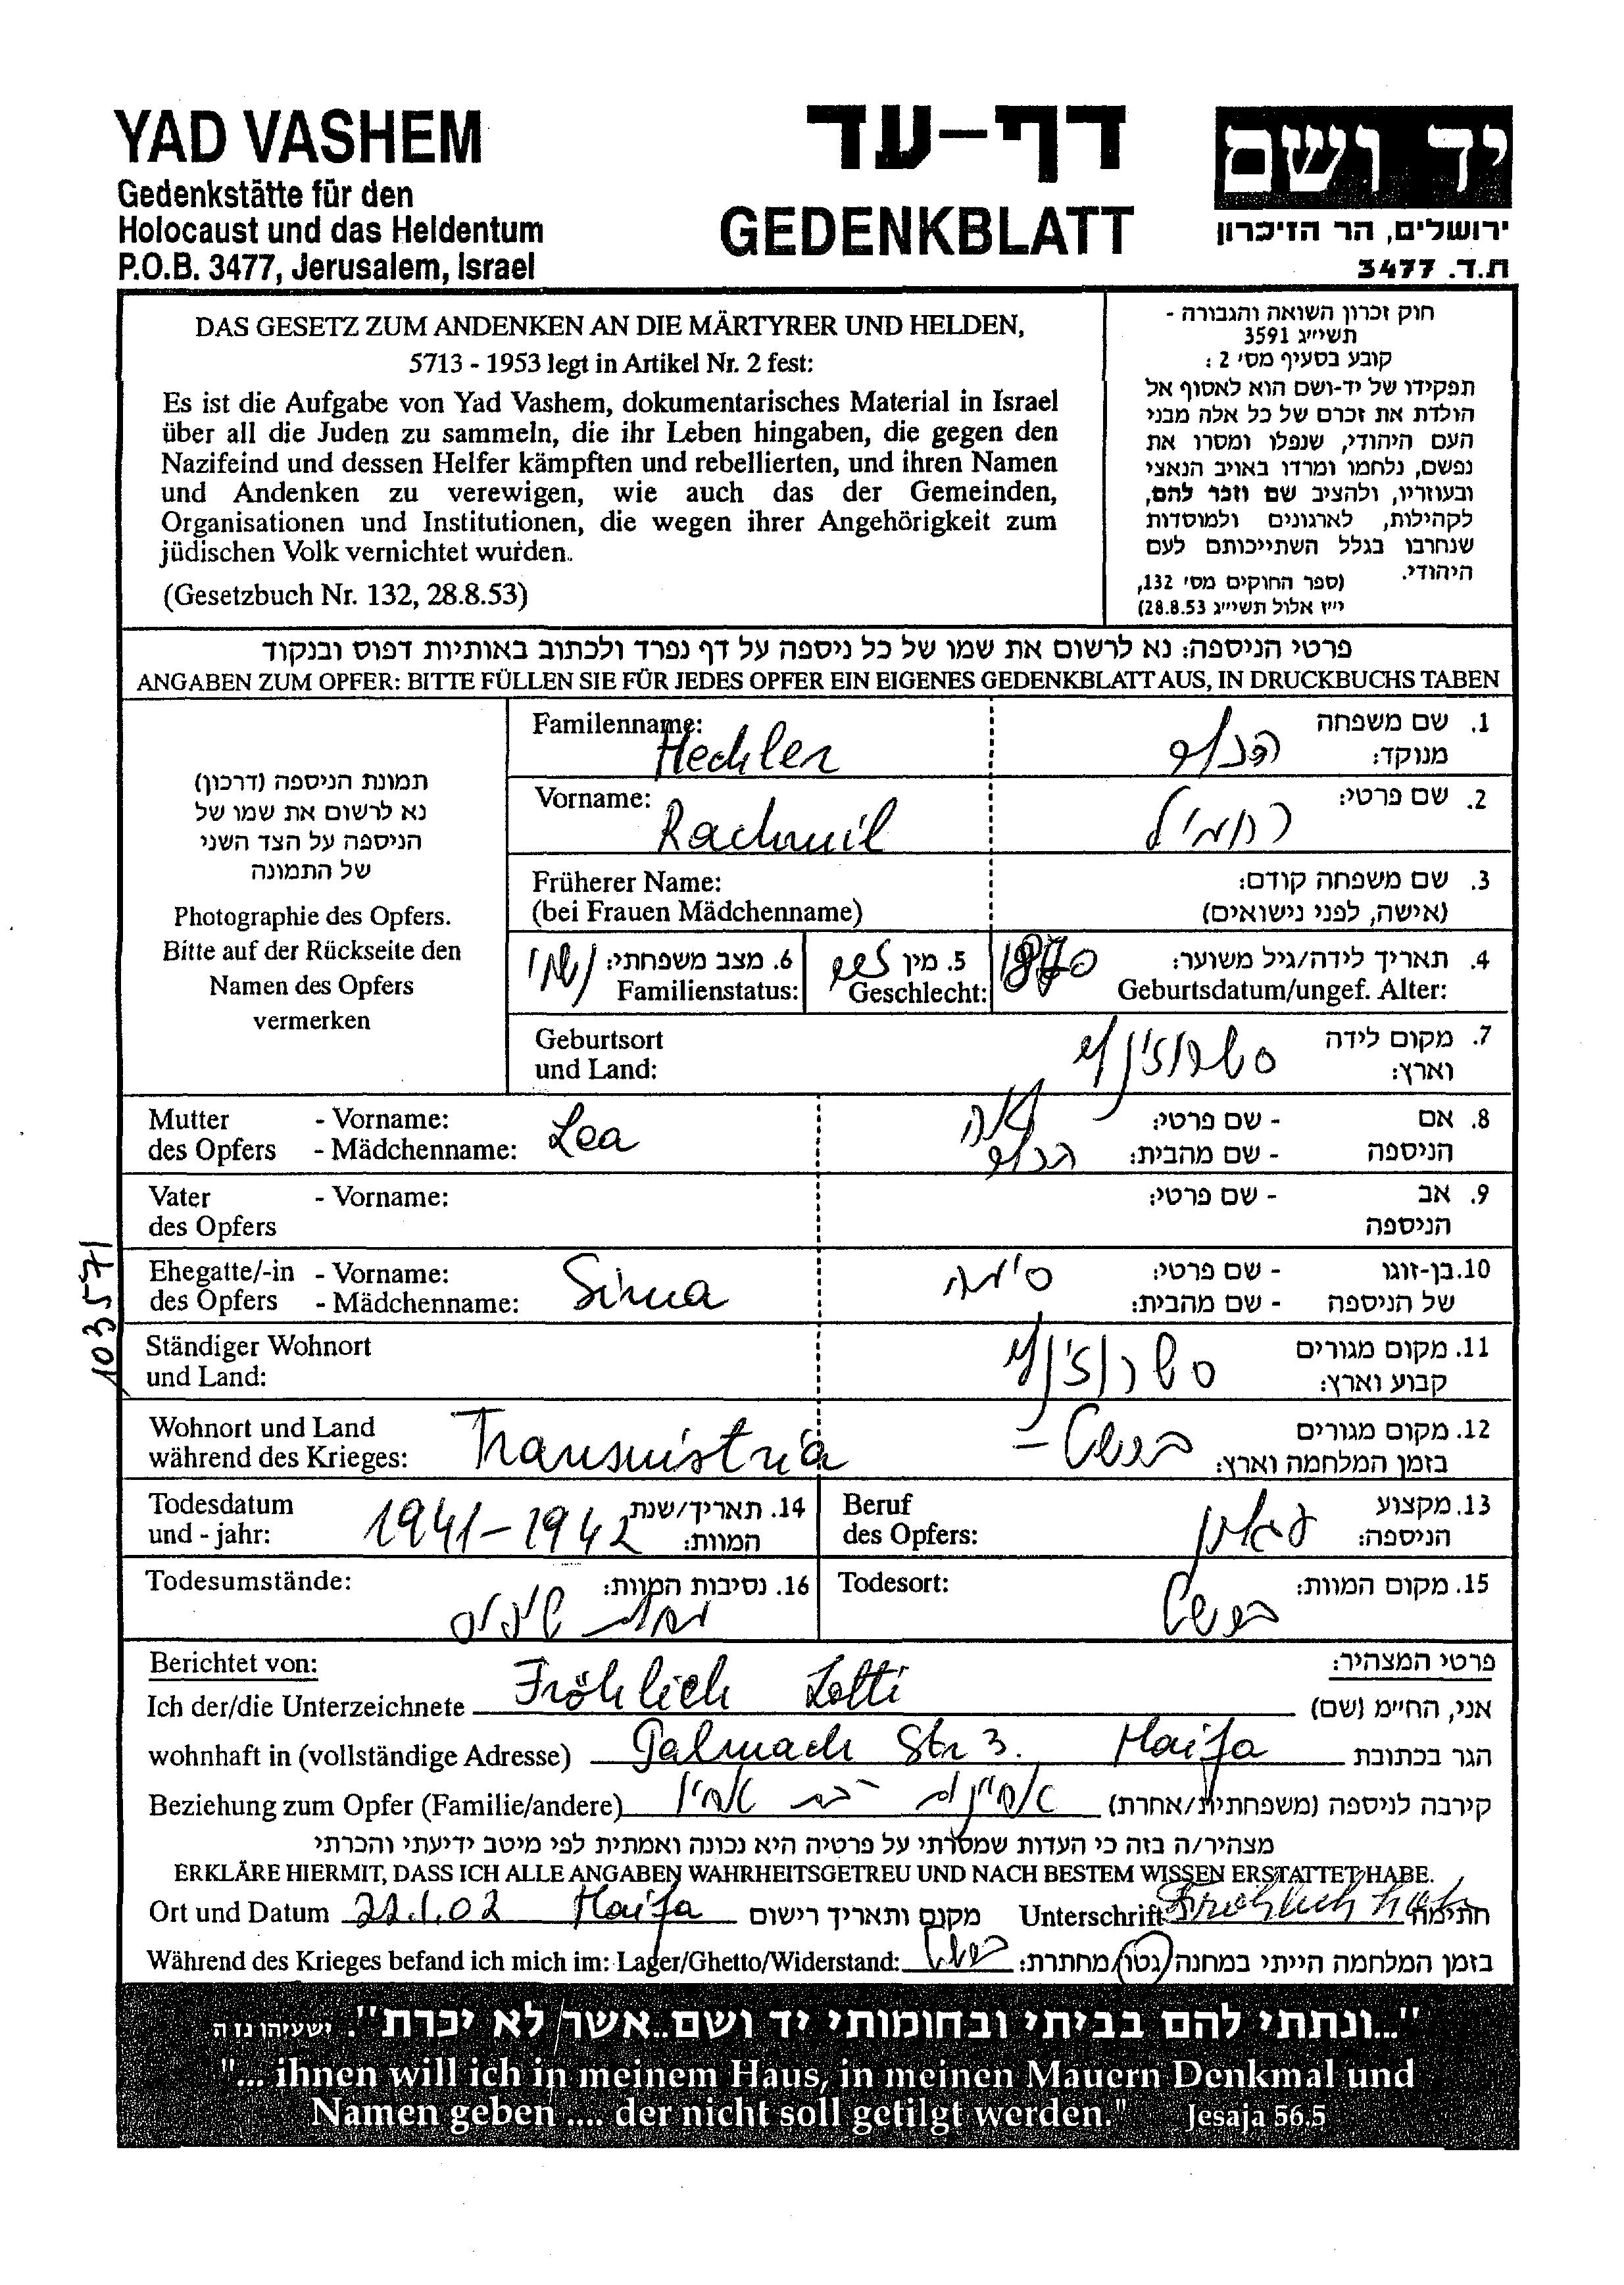 YAD VASHEM
Gedenkstätte für den
Holocaust und das Heldentum
P.O.B. 3477, Jerusalem, Israel
דף-עד
GEDENKBLATT
יד ושם
ירושלים, הר הזיכרון
ת.ד. 3477
DAS GESETZ ZUM ANDENKEN AN DIE MÄRTYRER UND HELDEN,
5713 - 1953 legt in Artikel Nr. 2 fest:
Es ist die Aufgabe von Yad Vashem, dokumentarisches Material in Israel
über all die Juden zu sammeln, die ihr Leben hingaben, die gegen den
Nazifeind und dessen Helfer kämpften und rebellierten, und ihren Namen
und Andenken zu verewigen, wie auch das der Gemeinden,
Organisationen und Institutionen, die wegen ihrer Angehörigkeit zum
jüdischen Volk vernichtet wurden.
(Gesetzbuch Nr. 132, 28.8.53)
חוק זכרון השואה והגבורה -
תשי״ג 3591
קובע בסעיף מס׳ 2 :
תפקידו של יד-ושם הוא לאסוף אל
הולדת את זכרם של כל אלה מבני
העם היהודי, שנפלו ומסרו את
נפשם, נלחמו ומרדו באויב הנאצי
ובעוזריו, ולהציב שם וזכר להם,
לקהילות, לארגונים ולמוסדות
שנחרבו בגלל השתייכותם לעם
היהודי. (ספר החוקים מס׳ 132,
י״ז אלול תשי״ג 28.8.53)
פרטי הניספה: נא לרשום את שמו של כל ניספה על דף נפרד ולכתוב באותיות דפוס ובנקוד
ANGABEN ZUM OPFER: BITTE FÜLLEN SIE FÜR JEDES OPFER EIN EIGENES GEDENKBLATT AUS, IN DRUCKBUCHS TABEN
תמונת הניספה (דרכון)
נא לרשום את שמו של
הניספה על הצד השני
של התמונה
Photographie des Opfers.
Bitte auf der Rückseite den
Namen des Opfers
vermerken
Familenname: Hechler
1. שם משפחה
מנוקד:
Vorname: Rachmil
2. שם פרטי: רחמיל
Früherer Name:
(bei Frauen Mädchenname)
3. שם משפחה קודם:
(אישה, לפני נישואים)
4. תאריך לידה/גיל משוער: 1870
Geburtsdatum/ungef. Alter:
5. מין
Geschlecht:
6. מצב משפחתי: נשוי
Familienstatus:
Geburtsort
und Land:
7. מקום לידה
וארץ:
Mutter - Vorname: Lea
des Opfers - Mädchenname:
8. אם - שם פרטי: לאה
הניספה - שם מהבית:
Vater - Vorname:
des Opfers
9. אב - שם פרטי:
הניספה
Ehegatte/-in - Vorname: Sima
des Opfers - Mädchenname:
10. בן-זוגו - שם פרטי: סימה
של הניספה - שם מהבית:
Ständiger Wohnort
und Land:
11. מקום מגורים
קבוע וארץ:
Wohnort und Land
während des Krieges: Transnistria
12. מקום מגורים
בזמן המלחמה וארץ: ברשד -
Todesdatum
und - jahr: 1941-1942
14. תאריך/שנת
המוות:
Beruf
des Opfers:
13. מקצוע
הניספה:
Todesumstände:
16. נסיבות המוות:
Todesort:
15. מקום המוות: ברשד
103571
Berichtet von:
פרטי המצהיר:
Ich der/die Unterzeichnete Fröhlich Lotti אני, החי״מ (שם)
wohnhaft in (vollständige Adresse) Palmach Str 3. Haifa הגר בכתובת
Beziehung zum Opfer (Familie/andere) קירבה לניספה (משפחתית/אחרת)
מצהיר/ה בזה כי העדות שמסרתי על פרטיה היא נכונה ואמתית לפי מיטב ידיעתי והכרתי
ERKLÄRE HIERMIT, DASS ICH ALLE ANGABEN WAHRHEITSGETREU UND NACH BESTEM WISSEN ERSTATTET HABE.
Ort und Datum 22.1.02 Haifa מקום ותאריך רישום Unterschrift Fröhlich Lotti חתימה
Während des Krieges befand ich mich im: Lager/Ghetto/Widerstand: ברשד בזמן המלחמה הייתי במחנה/גטו/מחתרת:
"...ונתתי להם בביתי ובחומותי יד ושם..אשר לא יכרת". ישעיהו נו ה
"... ihnen will ich in meinem Haus, in meinen Mauern Denkmal und
Namen geben .... der nicht soll getilgt werden." Jesaja 56.5